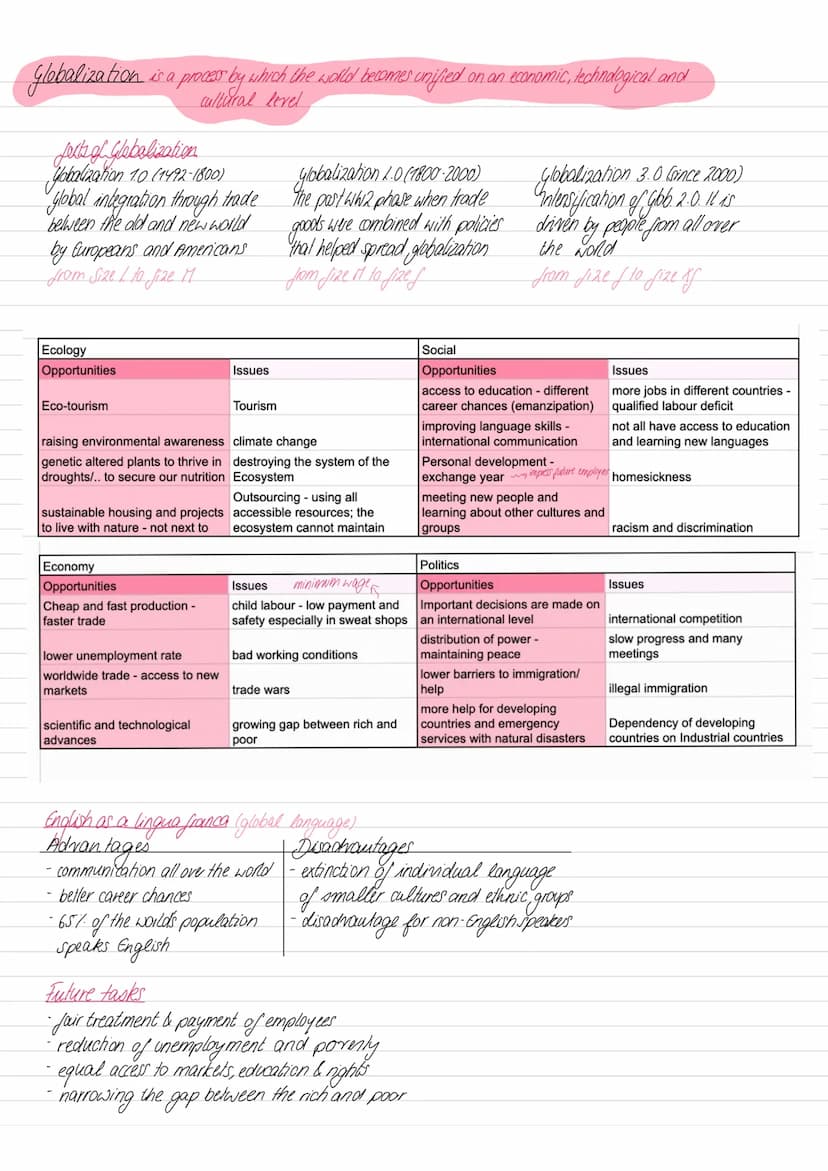 Globalization is a process by which the world becomes unified on an economic, technological and
cultural level
sorts of Globalization
Globalization 1.0 (1492-1800)
global integration through trade
between the old and new world
by Europeans and Americans
from size L to size M
Globalization 2.0 (1800-2000)
The post WW2 phase when trade
goods were combined with policies
that helped spread globalization
from size M to size S
Globalization 3.0 (since 2000)
Intensification of Glob 2.0. It is
driven by people from all over
the world
from size S to size XS
Ecology
Opportunities
Issues
Eco-tourism
Tourism
raising environmental awareness
climate change
genetic altered plants to thrive in
droughts/.. to secure our nutrition
destroying the system of the
Ecosystem
sustainable housing and projects
to live with nature - not next to
Outsourcing - using all
accessible resources; the
ecosystem cannot maintain
Social
Opportunities
Issues
access to education - different
career chances (emanzipation)
more jobs in different countries -
qualified labour deficit
improving language skills -
international communication
not all have access to education
and learning new languages
Personal development -
exchange year
impress future employer
homesickness
meeting new people and
learning about other cultures and
groups
racism and discrimination
Economy
Opportunities
Issues
minimum wage
Cheap and fast production -
faster trade
child labour - low payment and
safety especially in sweat shops
lower unemployment rate
bad working conditions
worldwide trade - access to new
markets
trade wars
scientific and technological
advances
growing gap between rich and
poor
Politics
Opportunities
Issues
Important decisions are made on
an international level
international competition
distribution of power -
maintaining peace
slow progress and many
meetings
lower barriers to immigration/
help
illegal immigration
more help for developing
countries and emergency
services with natural disasters
Dependency of developing
countries on Industrial countries
English as a lingua franca (global language)
Advantages
- communication all over the world
- better career chances
- 65% of the world's population
speaks English
Disadvantages
- extinction of individual language
of smaller cultures and ethnic groups
- disadvantage for non-English speakers
Future tasks
- fair treatment & payment of employees
- reduction of unemployment and poverty
- equal access to markets, education & rights
- narrowing the gap between the rich and poor